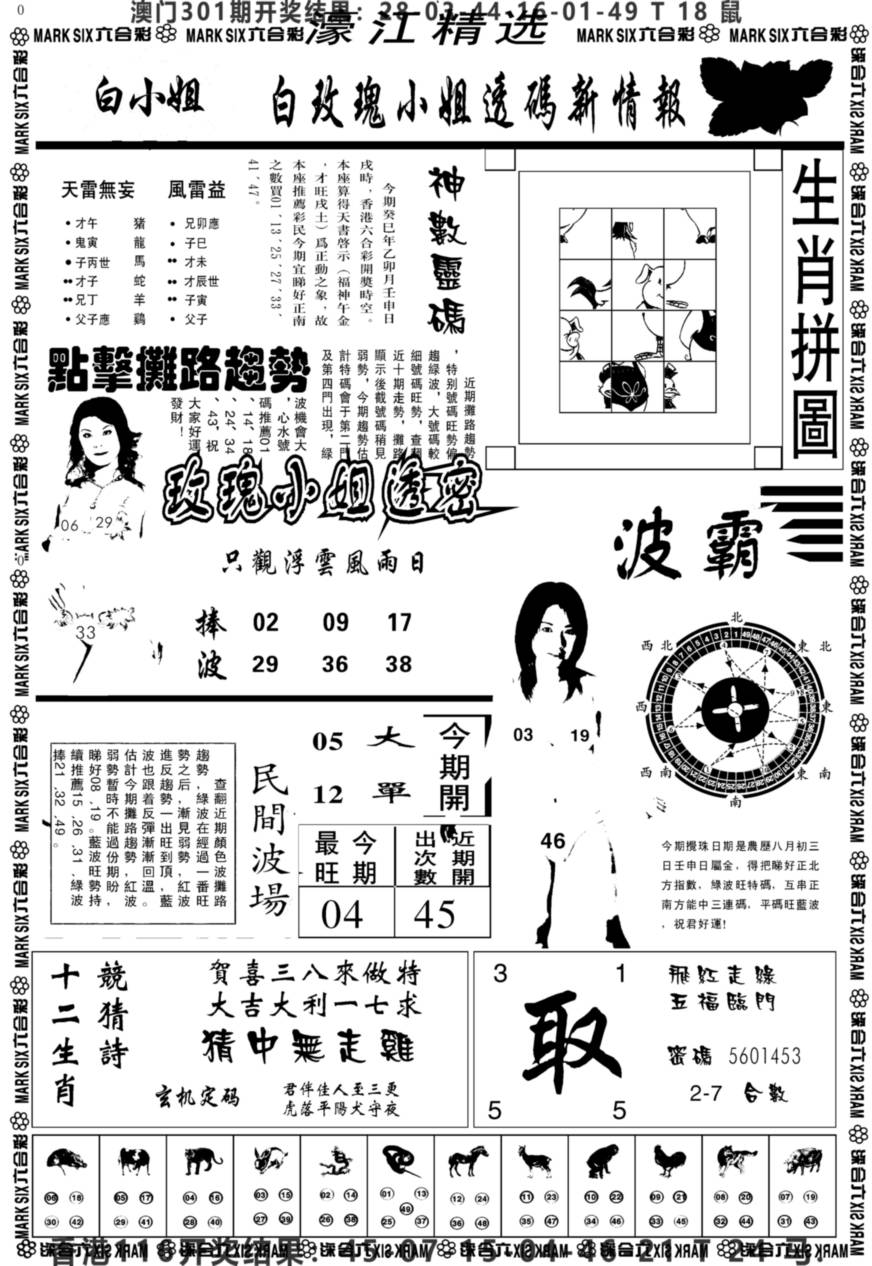 0
澳门301期开奖结果：28-03-44-16-01-49 T 18 鼠
MARK SIX六合彩 MARK SIX六合彩 濠江精选 MARK SIX六合彩 MARK SIX六合彩
白小姐 白玫瑰小姐透碼新情報
天雷無妄 風雷益
才午 豬 兄卯應
鬼寅 龍 子巳
子丙世 馬 才未
才子 蛇 才辰世
兄丁 羊 子寅
父子應 鷄 父子
神數靈碼
今期癸巳年乙卯月壬申日
戌時，香港六合彩開獎時空。
本座算得天書啓示（福神午金
，才旺戌土）爲正動之象，故
本座推薦彩民今期宜睇好正南
之數買01、13、25、27、33、
41、47。
生肖拼圖
點擊攤路趨勢
近期攤路趨勢
，特别號碼旺勢偏
趨綠波，大號碼較
細號碼旺勢，查翻
近十期走勢，攤路
顯示後截號碼稍見
弱勢，今期趨勢估
計特碼會于第二門
及第四門出現，綠
波機會大
，心水號
碼推薦01
、14、18
、24、34
、43，祝
大家好運
發財！
06 29
33
玫瑰小姐透密
只觀浮雲風雨日
捧 02 09 17
波 29 36 38
波霸
03 19
46
北
西北 東北
西 東
西南 東南
南
今期攪珠日期是農歷八月初三
日壬申日屬金，得把睇好正北
方指數，綠波旺特碼，互串正
南方能中三連碼，平碼旺藍波
，祝君好運!
查翻近期顏色攤路
趨勢，綠波在經過一波
勢之后，漸見弱勢，番旺
進反趨勢一出旺到頂，紅波
波也跟着反彈漸漸回，藍
估計今期攤路趨勢紅溫。
弱勢暫時不能過份期盼，波
睇好08、19。藍波旺勢持
續推薦15、26、31，綠波
捧21、32、49。
民間波場
05 大
12 單
今期開
最旺 今期
出次數 近期開
04 45
十二生肖
競猜詩
賀喜三八來做特
大吉大利一七求
猜中無走雞
玄机定码
君伴佳人至三更
虎落平陽犬守夜
3 1
取
5 5
飛紅走綠
五福臨門
密碼 5601453
2-7 合數
06 18 05 17 04 16 03 15 02 14 01 13 12 24 11 23 10 22 09 21 08 20 07 19
49
30 42 29 41 28 40 27 39 26 38 25 37 36 48 35 47 34 46 33 45 32 44 31 43
香港116开奖结果：45-07-15-04-46-21 T 24 马